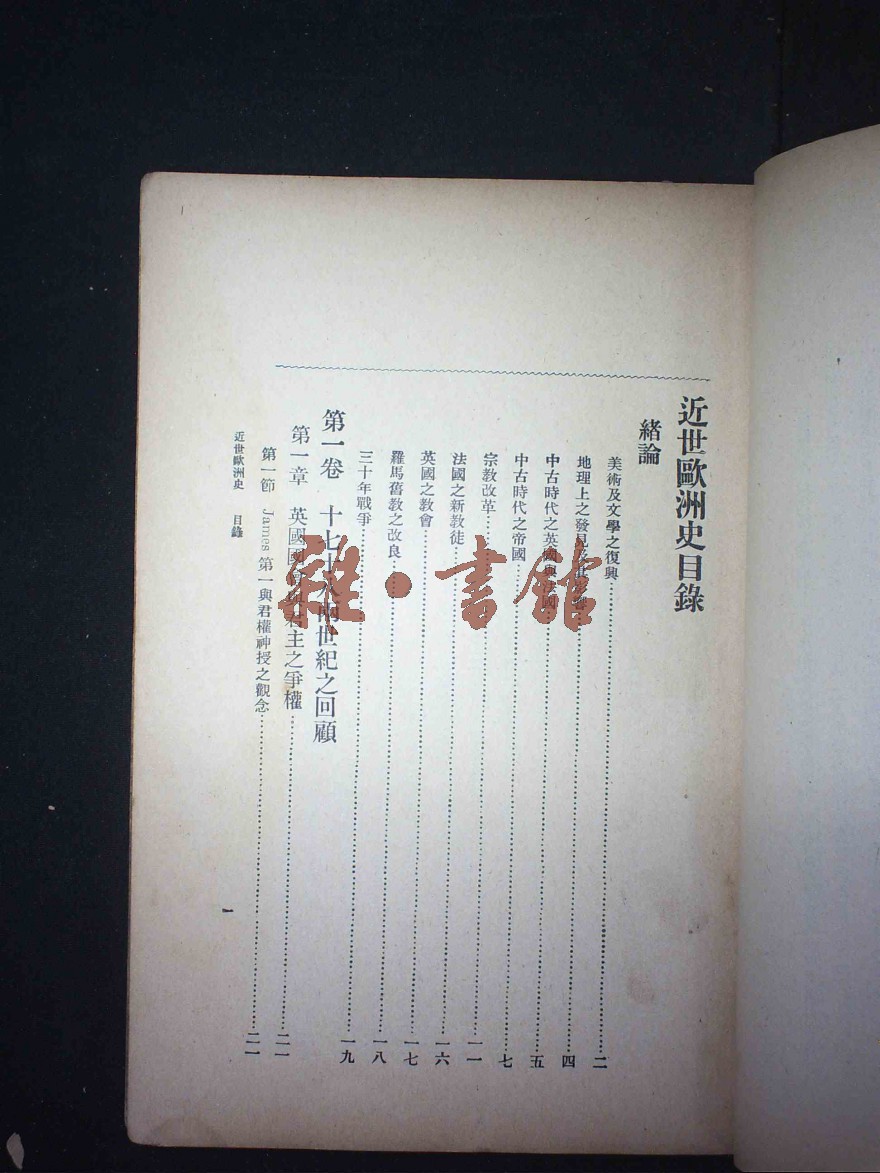 近世歐洲史目錄
緒論
美術及文學之復興…………二
地理上之發見及其影響…………四
中古時代之英國與法國…………五
中古時代之帝國…………七
宗教改革…………一一
法國之新教徒…………一六
英國之教會…………一七
羅馬舊教之改良…………一八
三十年戰爭…………一九
第一卷 十七十八兩世紀之回顧
第一章 英國國會與君主之爭權…………二一
第一節 James 第一與君權神授之觀念…………二一
近世歐洲史 目錄
一
雜·書館